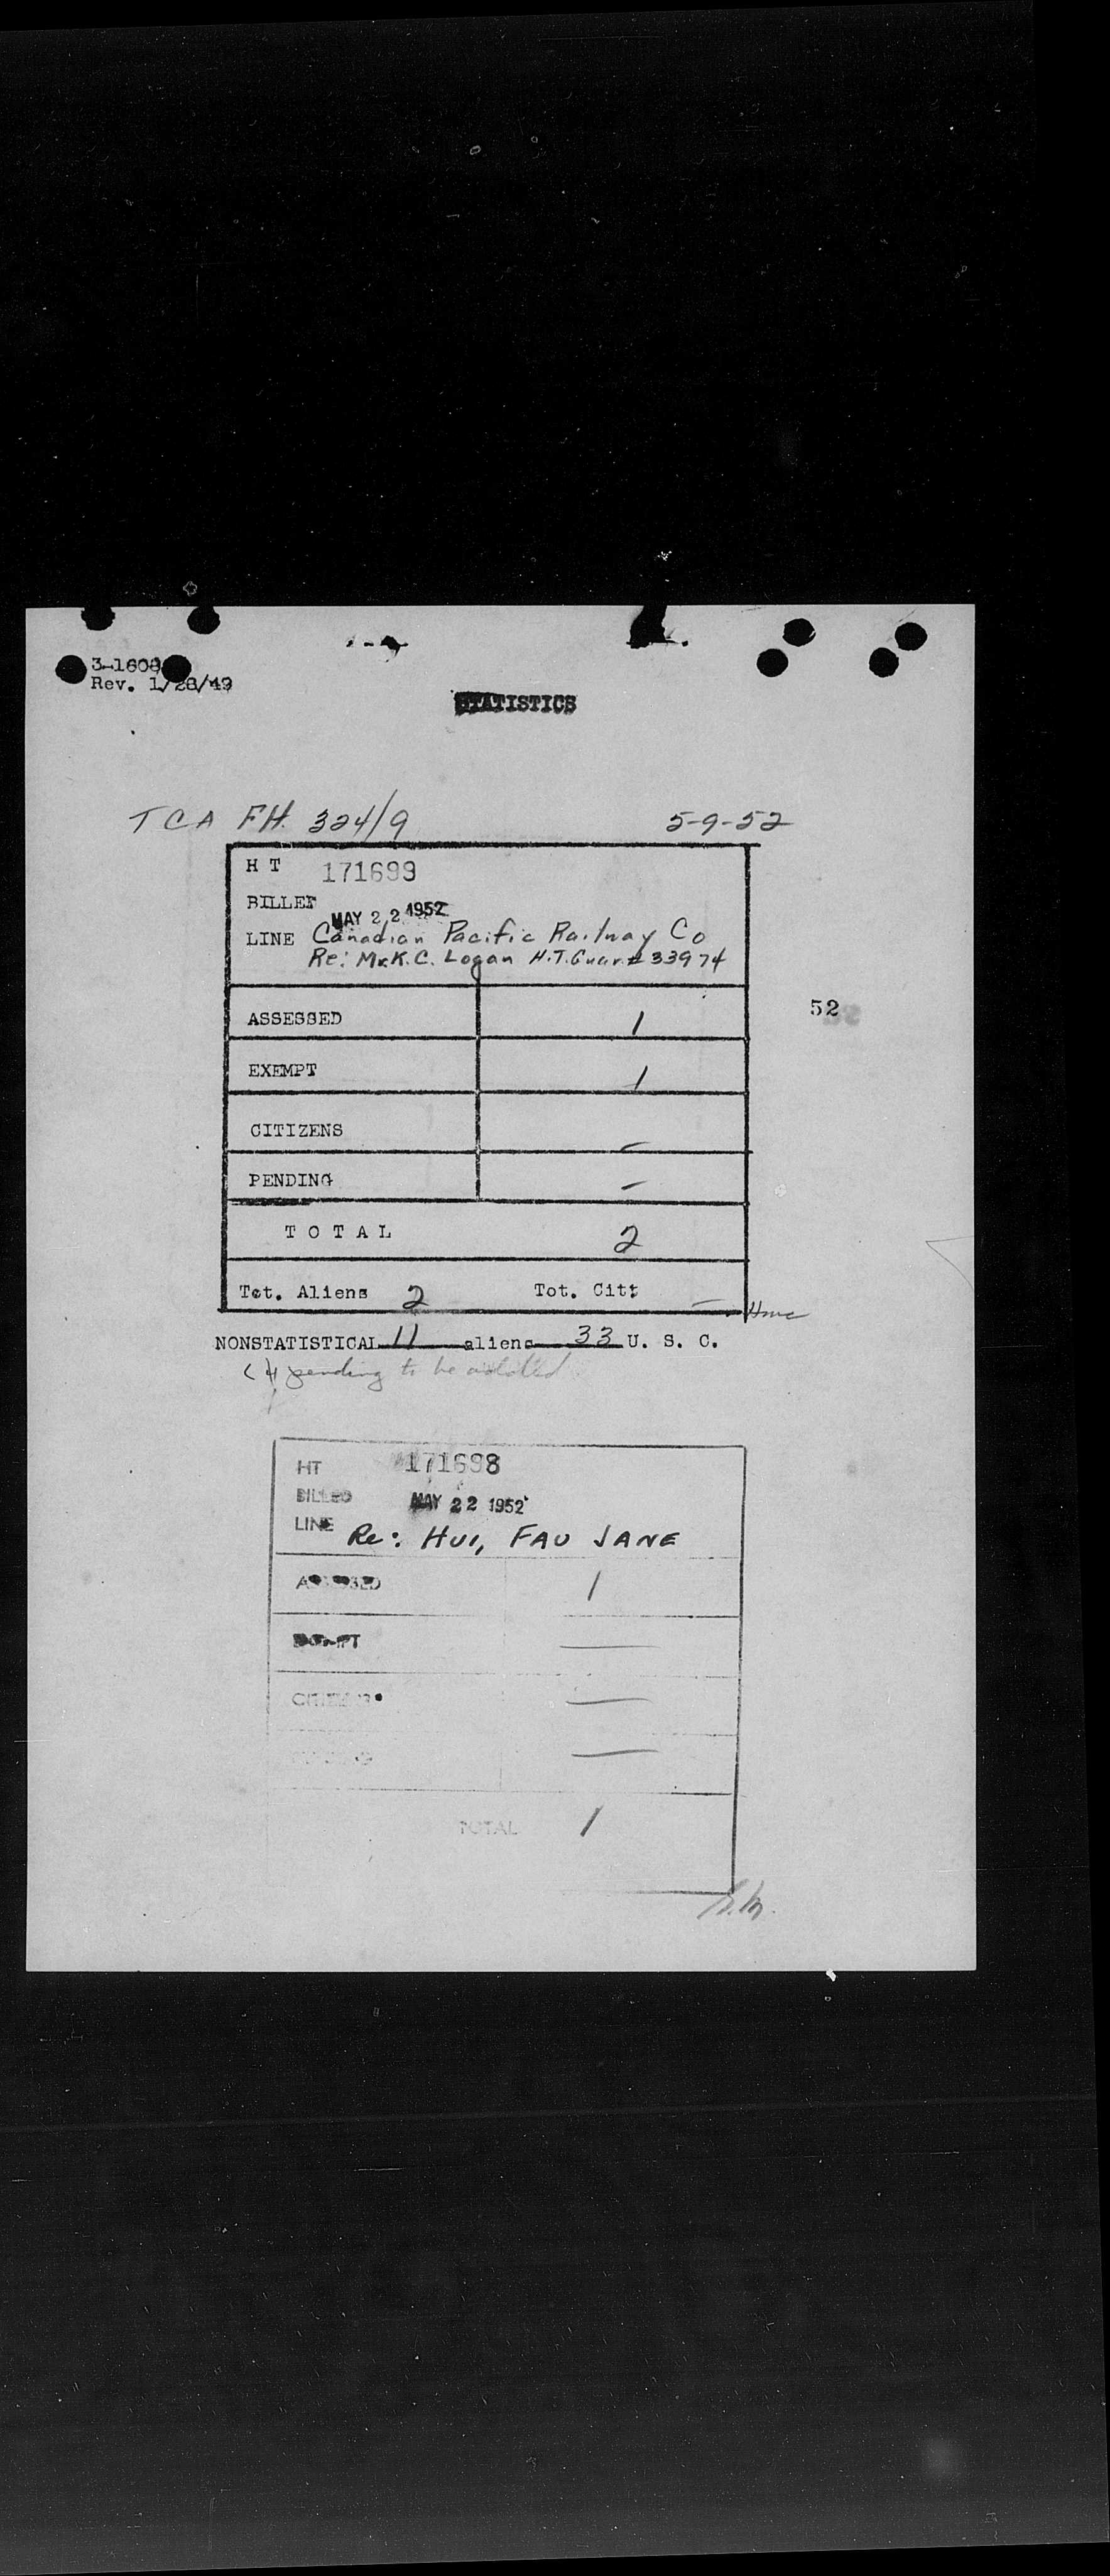 3-1608
Rev. 1/28/49
STATISTICS
TCA FH. 324/9 5-9-52
H T 171699
BILLED
MAY 22 1952
LINE Canadian Pacific Railway Co
Re: Mr. K. C. Logan H.T. Guar. # 33974
52
ASSESSED 1
EXEMPT 1
CITIZENS –
PENDING –
T O T A L 2
Tot. Aliens 2 Tot. Cit: –
NONSTATISTICAL 11 aliens 33 U. S. C.
pending to be added
HT 171698
BILLED MAY 22 1952
LINE Re: HUI, FAU JANE
ASSESSED 1
EXEMPT —
CITIZENS —
—
TOTAL 1